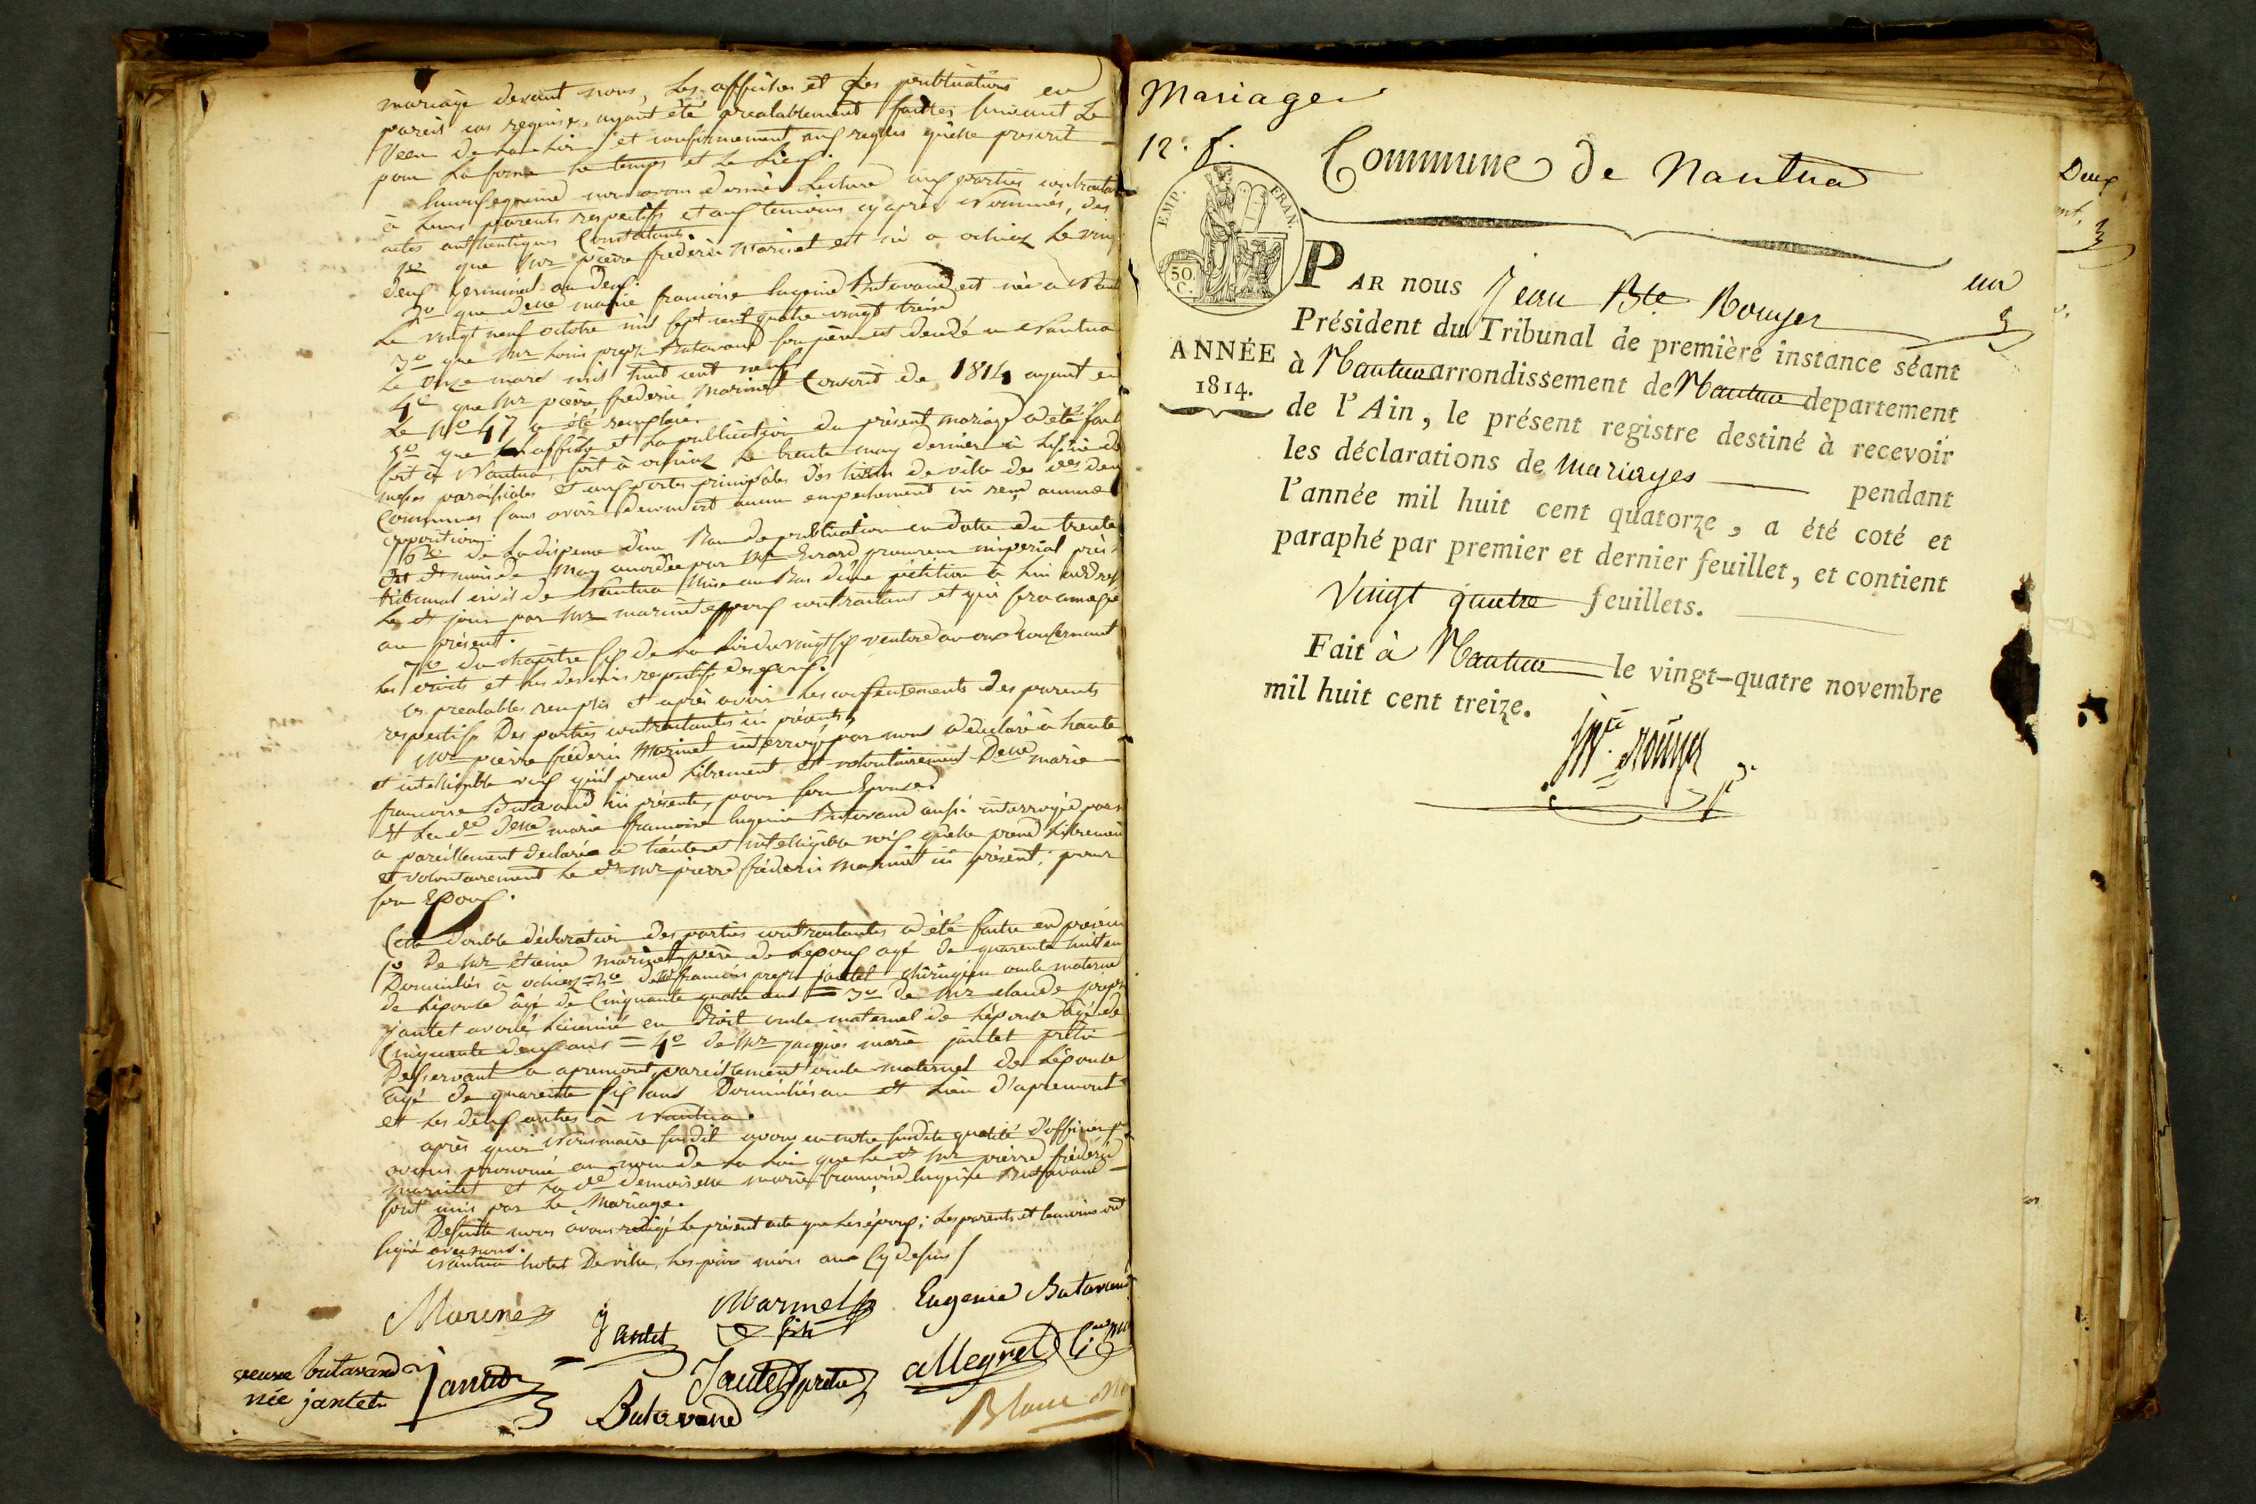 mariage devant nous, les affiches et les publications en
pareil cas requise, ayant été prealablement faites suivant le
veu de la loi et conformement aux regles qu'elle prescrit
pour la forme le temps et le lieu.
nous avons donné lecture aux parties contractantes
à leurs parents respectifs et aux temoins cy après nommés, des
actes authentiques constatants.
1o que mr pierre frederic Marinet est né a ochiaz le vingt
deux germinal an deux.
2o que delle marie francoise Eugenie Butavand est née a Nantua
le vingt neuf octobre mil sept cent quatre vingt treize
3o que mr louis joseph Butavand son père est decedé a Nantua
le onze mars mil huit cent neuf
4o que mr pierre frederic Marinet Conscrit de 1814 ayant eu
le No 47 a été remplacé.
5o que l'affiche et la publication du présent mariage a été faite
soit à Nantua, soit à ochiaz le trente may dernier à l'issue des
messes paroissiales et aux portes principales des hotels de ville des des deux
Communes sans avoir decouvert aucun empechement ni reçu aucune
opposition.
6o de la dispense d'un Ban de publication en date du trente
dt mois de May accordée par Mr Girard procureur imperial près le
tribunal civil de Nantua mise au Bas d'une petition à lui adressée
le dt jour par mr marinet epoux contractant et qui sera annexée
au présent.
7o du chapitre six de la loi du vingt six ventose an onze concernant
les droits et les devoirs respectifs des epoux.
ces prealables remplis et après avoir les consentements des parents
respectifs des parties contractantes ici présents,
Mr pierre frederic Marinet interrogé par nous a declaré à haute
et intelligible voix qu'il prend librement et volontairement Delle marie
francoise Butavand ici présente, pour son Epouse.
et la de delle marie francoise Eugenie Butavand aussi interrogée par nous
a pareillement declarée à haute et intelligible voix qu'elle prend librement
et volontairement le dt mr pierre frederic Marinet ici présent, pour
son Epoux.
Cette double déclaration des parties contractantes a été faite en présence
1o De mr étienne marinet père de l'époux agé de quarante huit ans
Domicilié à ochiaz = 2o de mr francois joseph jantet chirurgien oncle maternel
de l'épouse âgé de Cinquante quatre ans = 3o de mr claude joseph
jantet avoué licencié en droit oncle maternel de l'épouse âgé de
Cinquante deux ans = 4o de mr jacques marie jantet prêtre
Desservant a apremont pareillement oncle maternel de l'épouse
âgé de quarante six ans Domiciliés au dt lieu d'apremont
et les deux autres à Nantua.
après quoi Nous maire susdit avons en notre susdite qualité d'officier
avons prononcé au nom de la loi que le dt mr pierre frédéric
marinet et la de demoiselle marie francoise Eugenie Butavand
sont unis par le Mariage.
De suite nous avons redigé le présent acte que les époux, les parents et temoins ont
signé avec nous.
Nantua hotel De ville, les jour mois an Cy dessus
Marinet
Marinet fils
Eugenie Butavand
Jantet
veuve butavand
née jantet
Jantet
Jantet prêtre
allegret
Butavand
Blanc
Mariages
12. f.
Commune de Nantua
EMP. FRAN.
50. C.
un
PAR NOUS Jean Bte Rouyer
Président du Tribunal de première instance séant
ANNÉE
1814.
à Nantua arrondissement de Nantua departement
de l'Ain, le présent registre destiné à recevoir
les déclarations de mariages pendant
l'année mil huit cent quatorze, a été coté et
paraphé par premier et dernier feuillet, et contient
vingt quatre feuillets.
Fait à Nantua le vingt-quatre novembre
mil huit cent treize.
Jn Bte Rouyer
Deux